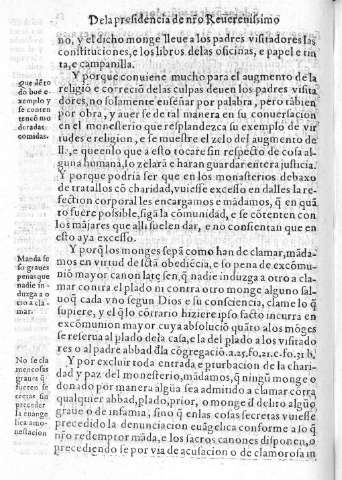 De la presidencia de nr̃o Reuerẽdissimo
no, y el dicho monge lleue a los padres visitadores las
constituciones, e los libros de las oficinas, e papel e tin
ta, e campanilla.
Y porque conuiene mucho para el augmento de la
religiõ e correciõ de las culpas deuen los padres visita
dores, no solamente enseñar por palabra, pero tãbien
por obra, y auerse de tal manera en su conuersacion
en el monesterio que resplandezca su exemplo de vir
tudes e religion, e se muestre el zelo del augmento de
lla, e que en lo que a esto tocare sin respecto de cosa al
guna humana, lo zelarã e haran guardar entera justicia.
Y porque podria ser que en los monesterios debaxo
de tratallos cõ charidad, vuiesse excesso en dalles la re
fection corporal les encargamos e mãdamos, q̃ en quã
to fuere possible, sigã la cõmunidad, e se cõtenten con
los mãjares que alli suelen dar, e no consientan que en
esto aya excesso.
Y porq̃ los monges sepã como han de clamar, mãda
mos en virtud de sctã obediẽcia, e so pena de excõmu
niõ mayor canon late sen, q̃ nadie induzga a otro a cla
mar contra el plado ni contra otro monge alguno sal
uo q̃ cada vno segun Dios e su consciencia, clame lo q̃
supiere, y el q̃ lo cõrrario hiziere ipso facto incurra en
excõmunion mayor cuya absoluciõ quãto a los mõges
se reserua al plado de la casa, e la del plado a los visitado
res o al padre abbad dla cõgregaciõ. a.25.fo.21.c.fo.31 b.
Y por excluir toda entrada e pturbacion de la chari
dad y paz del monesterio, mãdamos, q̃ ningũ monge o
donado por manera algũa sea admitido a clamar cõtra
qualquier abbad, plado, prior, o monge d delito algũo
graue o de infamia, sino q̃ en las cosas secretas vuiesse
precedido la denunciacion euãgelica conforme a lo q̃
nr̃o redemptor mãda, e los sacros canones disponen, o
precediendo se por via de acusacion o de clamorosa in
Que dẽ to
do buẽ e
xemplo y
se conten
tenẽ mo
deradas
comidas.
Manda se
so graues
penas que
nadie in-
duzga a o
tro a cla-
mar.
No se cla
men cosas
graues q̃
fueren se
cretas sin
preceder
la euange
lica amo-
nestacion